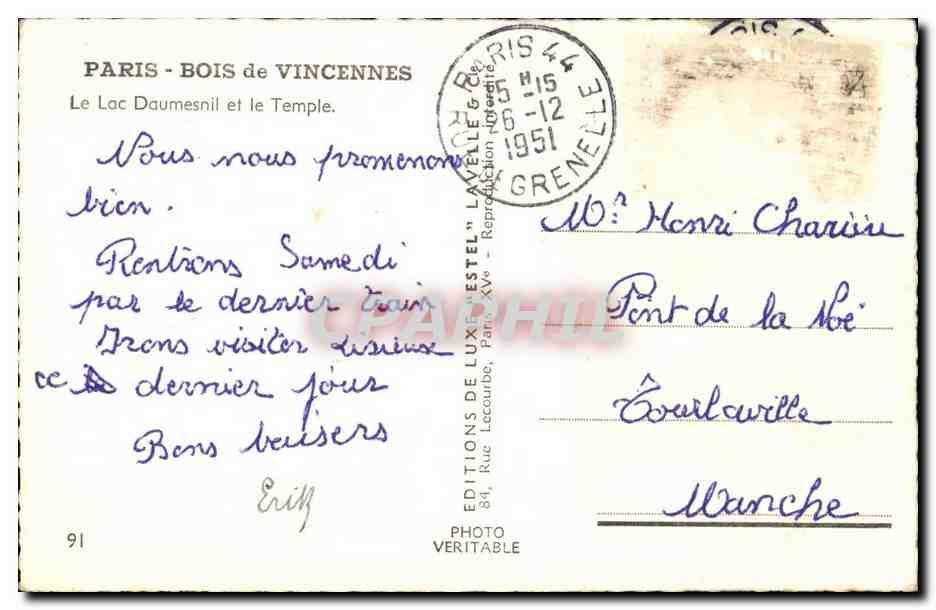 PARIS - BOIS de VINCENNES
Le Lac Daumesnil et le Temple.
Nous nous promenons
bien.
Rentrons Samedi
par le dernier train
Irons visiter Lisieux
ce dernier jour
Bons baisers
Erik
91
EDITIONS DE LUXE "ESTEL" LAVELLE & Cie
84, Rue Lecourbe, Paris XVe - Reproduction interdite
PHOTO
VERITABLE
PARIS 44
15 H -15
6 -12
1951
R. GRENELLE
Mr Henri
Pont de la Noé
Tourlaville
Manche
CPAPHIL